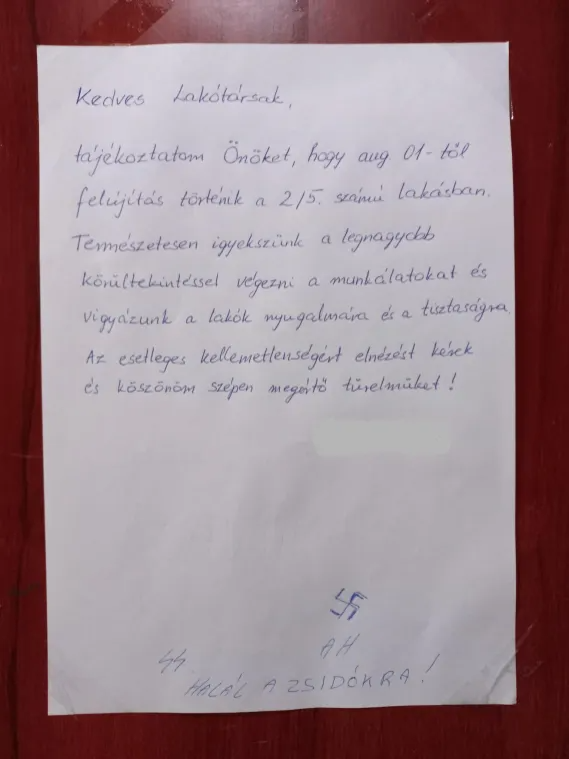 Kedves Lakótársak,
tájékoztatom Önöket, hogy aug 01-től
felújítás történik a 2/5. számú lakásban.
Természetesen igyekszünk a legnagyobb
körültekintéssel végezni a munkálatokat és
vigyázunk a lakók nyugalmára és a tisztaságra.
Az esetleges kellemetlenségért elnézést kérek
és köszönöm szépen megértő türelmüket!
卐
AH
ϟϟ
HALÁL A ZSIDÓKRA!